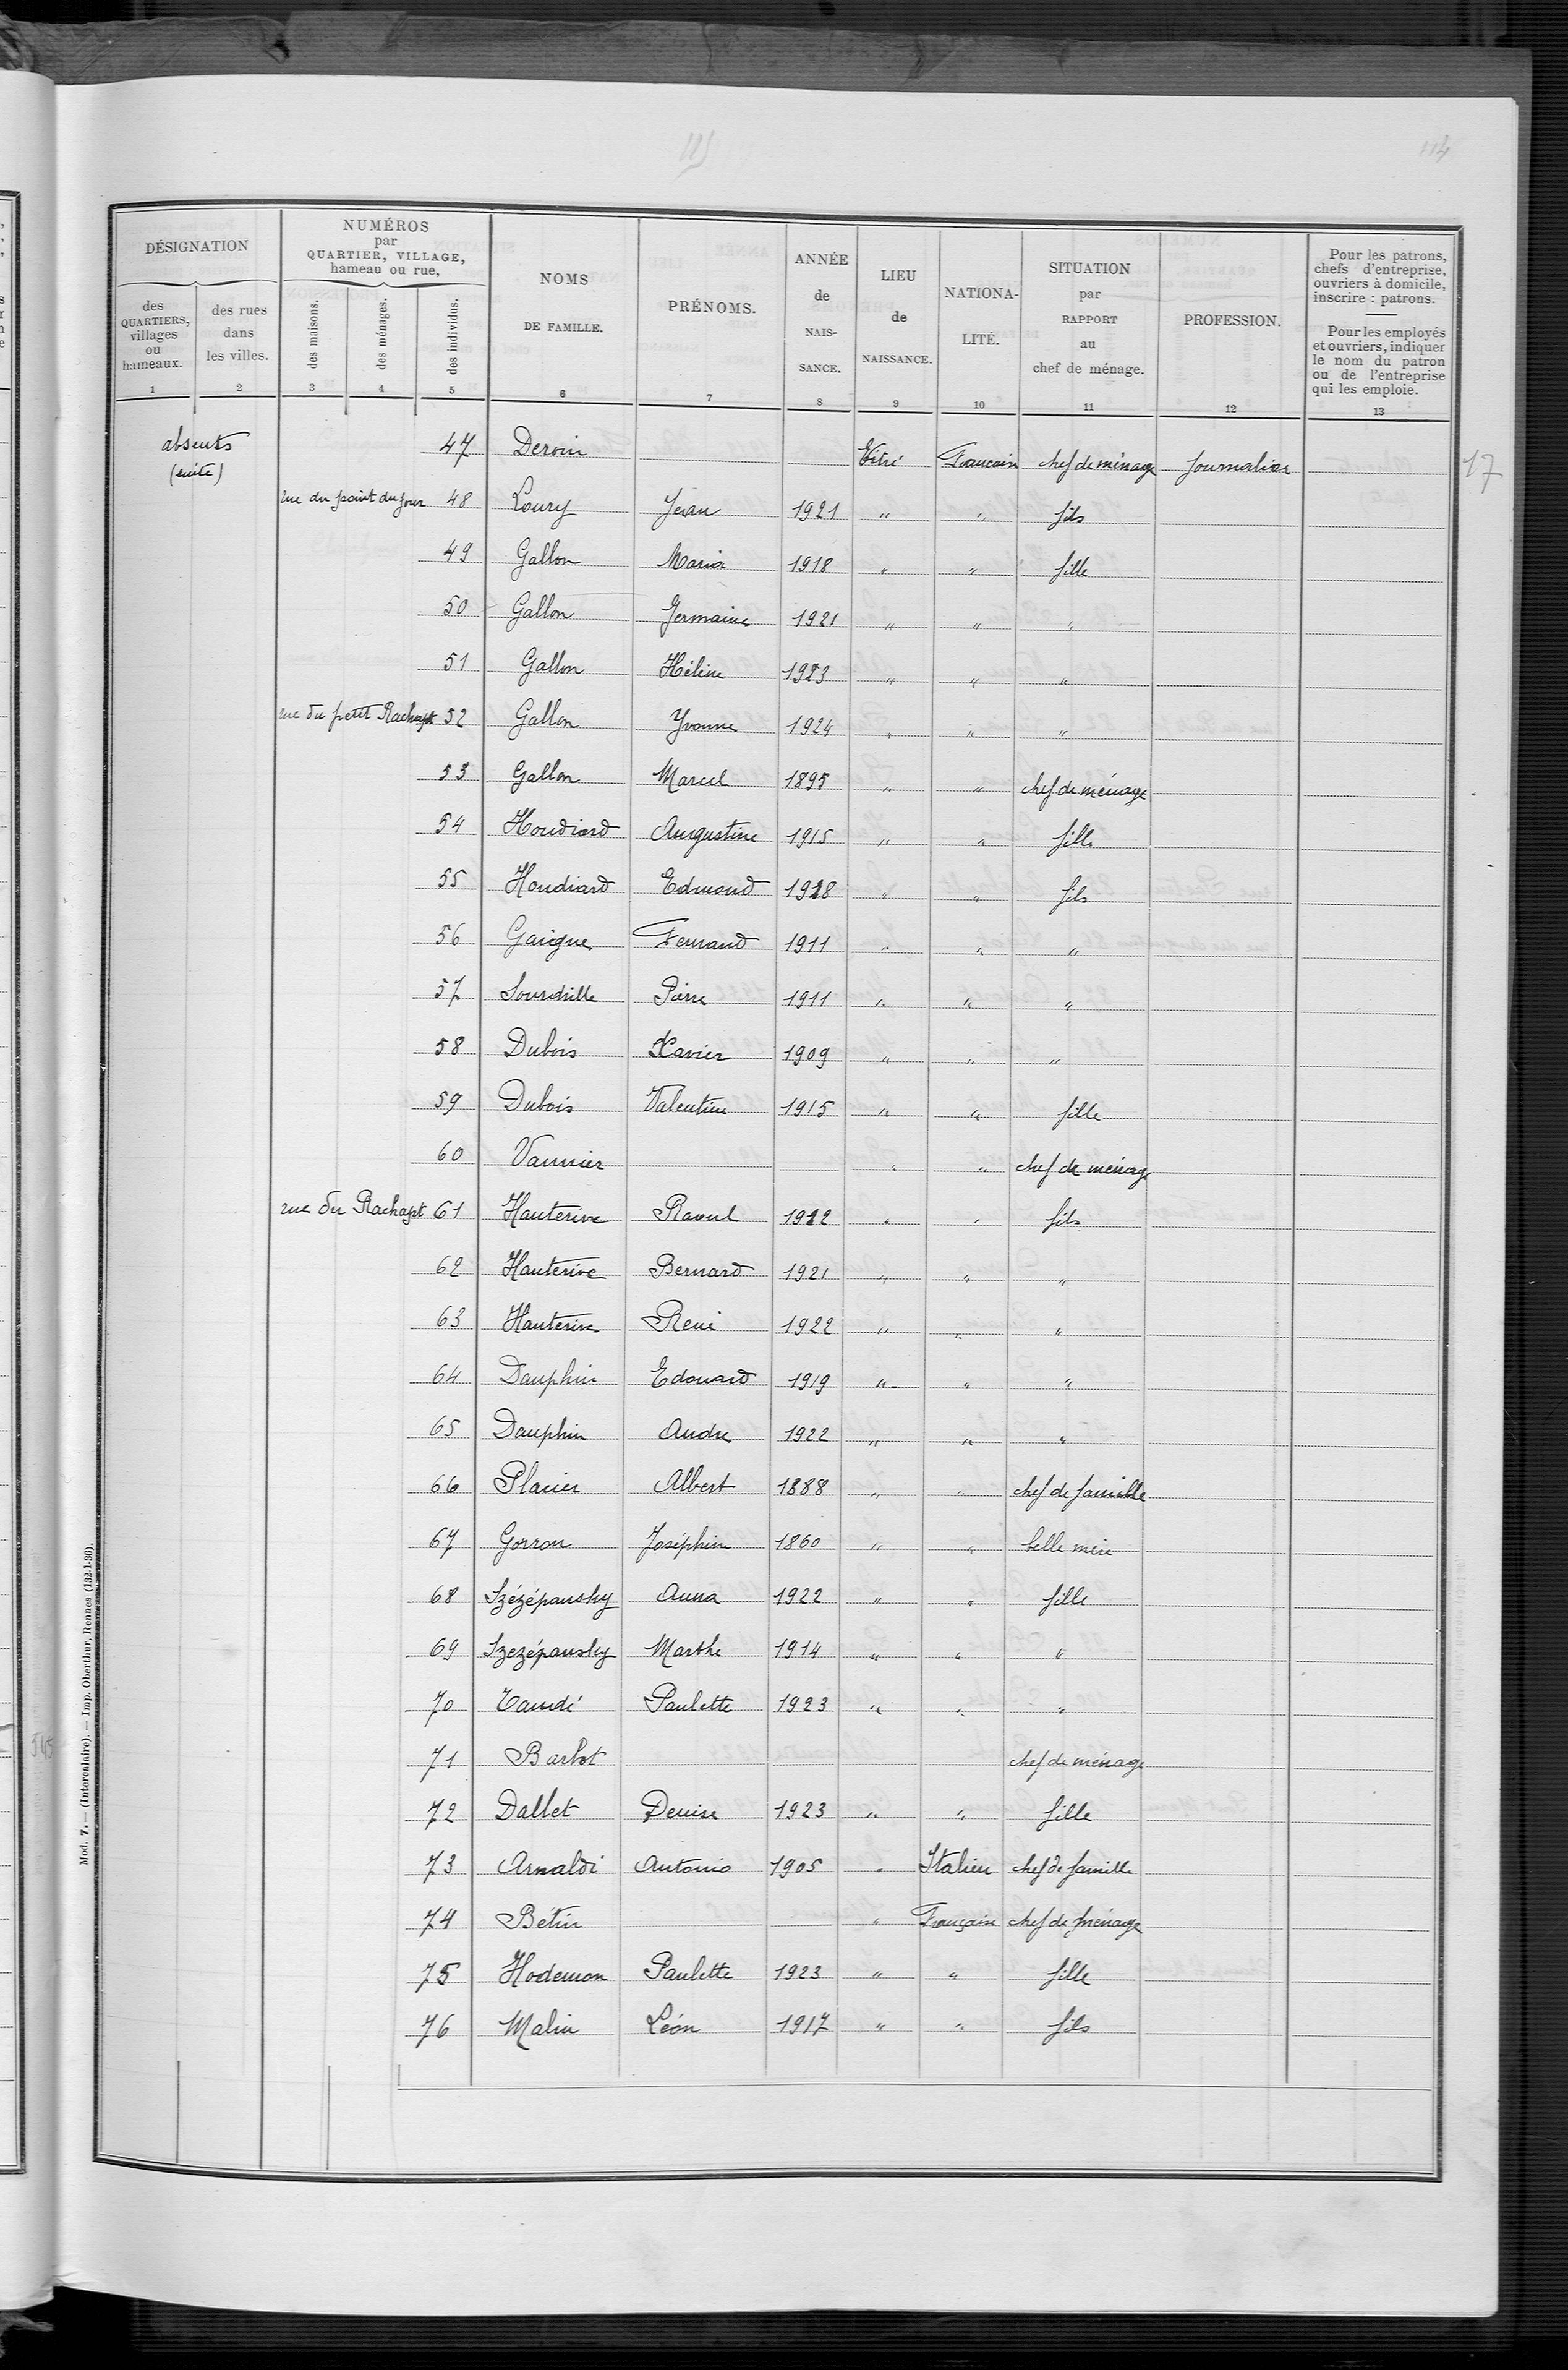 115
114
DÉSIGNATION
NUMÉROS
par
QUARTIER, VILLAGE,
hameau ou rue,
des
QUARTIERS,
villages
ou
hameaux.
1
des rues
dans
les villes.
2
des maisons.
3
des ménages.
4
des individus.
5
NOMS
DE FAMILLE.
6
PRÉNOMS.
7
ANNÉE
de
NAIS-
SANCE.
8
LIEU
de
NAISSANCE.
9
NATIONA-
LITÉ.
10
SITUATION
par
RAPPORT
au
chef de ménage.
11
PROFESSION.
12
Pour les patrons,
chefs d'entreprise,
ouvriers à domicile,
inscrire : patrons.
Pour les employés
et ouvriers, indiquer
le nom du patron
ou de l'entreprise
qui les emploie.
13
absents
(suite)
47 Deroin Vitré Française chef de ménage Journalier 17
rue du point du jour 48 Loury Jean 1921 " " fils
49 Gallon Maria 1918 " " fille
50 Gallon Germaine 1921 " " "
51 Gallon Hélène 1923 " " "
rue du petit Rachapt 52 Gallon Yvonne 1924 " " "
53 Gallon Marcel 1895 " " chef de ménage
54 Houdiard Augustine 1915 " " fille
55 Houdiard Edmond 1918 " " fils
56 Gaigne Fernand 1911 " " "
57 Sourdrille Pierre 1911 " " "
58 Dubois Xavier 1909 " " "
59 Dubois Valentine 1915 " " fille
60 Vannier " " chef de ménage
rue du Rachapt 61 Hauterive Raoul 1912 " " fils
62 Hauterive Bernard 1921 " " "
63 Hauterive René 1922 " " "
64 Dauphin Edouard 1919 " " "
65 Dauphin Andre 1922 " " "
66 Planier Albert 1888 " " chef de famille
67 Gorron Joséphine 1860 " " belle mère
68 Szézépansky Anna 1922 " " fille
69 Szezépansky Marthe 1914 " " "
70 Taudé Paulette 1923 " " "
71 Barbot chef de ménage
72 Dallet Denise 1923 " " fille
73 Arnaldi Antonio 1905 " Italien chef de famille
74 Bétin " Française chef de ménage
75 Hodemon Paulette 1923 " " fille
76 Malin Léon 1917 " " fils
Mod. 7. — (Intercalaire). — Imp. Oberthur, Rennes (132-1-36).